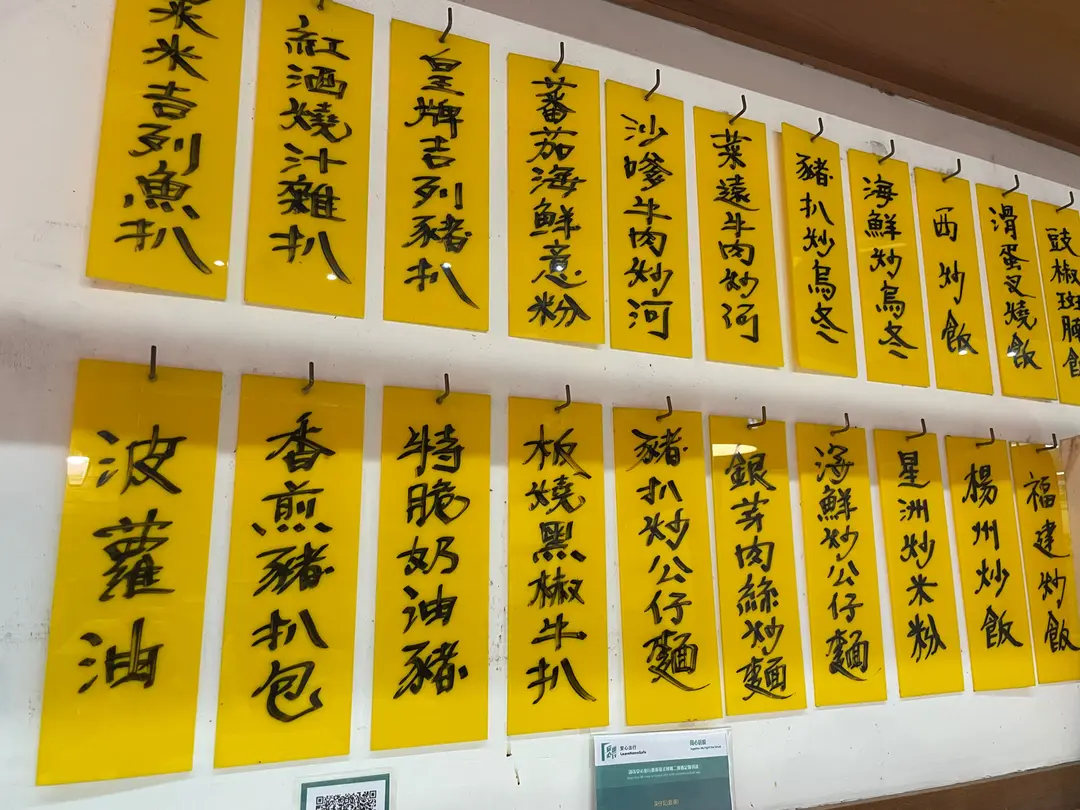 粟米吉列魚扒
紅酒燒汁雜扒
皇牌吉列豬扒
蕃茄海鮮意粉
沙嗲牛肉炒河
菜遠牛肉炒河
豬扒炒烏冬
海鮮炒烏冬
西炒飯
滑蛋叉燒飯
豉椒斑腩飯
波蘿油
香煎豬扒包
特脆奶油豬
板燒黑椒牛扒
豬扒炒公仔麵
銀芽肉絲炒麵
海鮮炒公仔麵
星洲炒米粉
楊州炒飯
福建炒飯
安心出行
LeaveHomeSafe
同心抗疫